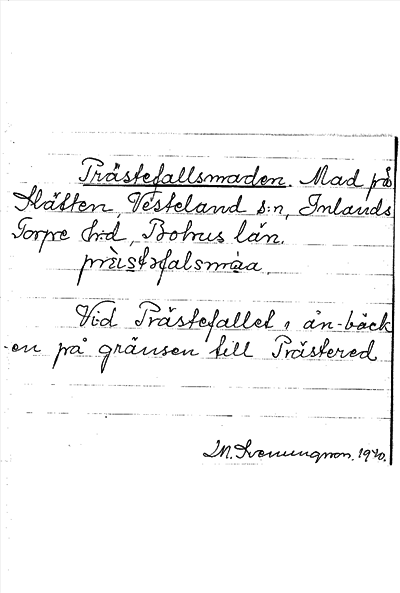 Prästefallsmaden. Mad på
Slätten, Vesteland s:n, Inlands
Torpe h:d, Bohus län.

Vid Prästefallet, ån-bäck
en på gränsen till Prästered
1920.